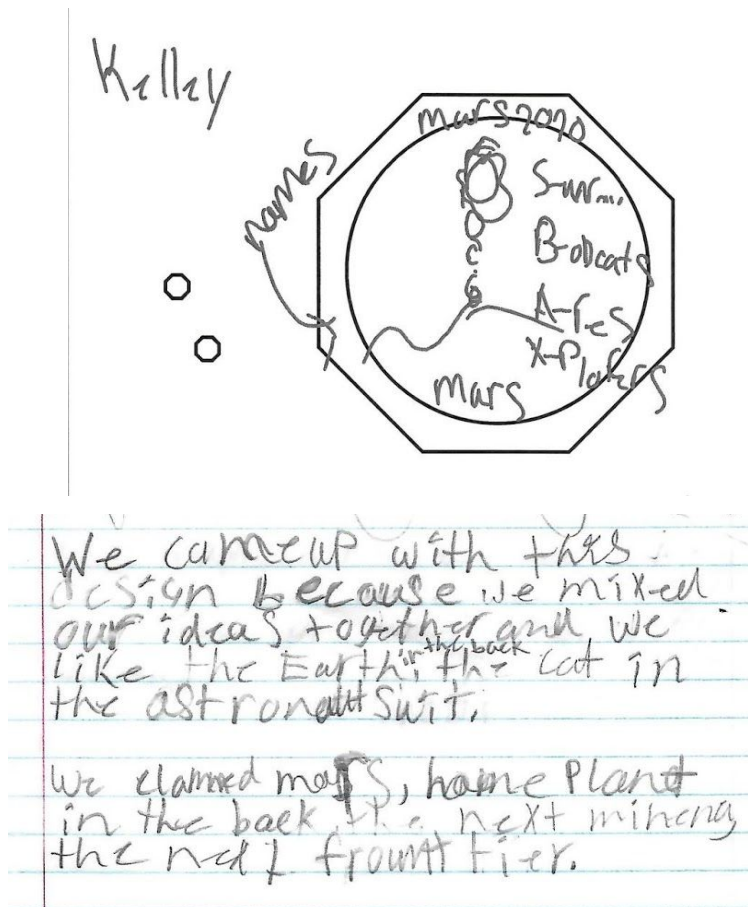 Kelley
mars 2020
names
S-ur...
B-obcats
A-res
X-Plorers
mars
We came up with this
design because we mixed
our ideas together and we
like the Earth in the back, the cat in
the astronaut suit.
We clammed mars, home Planet
in the back the next mineng
the next frount tier.